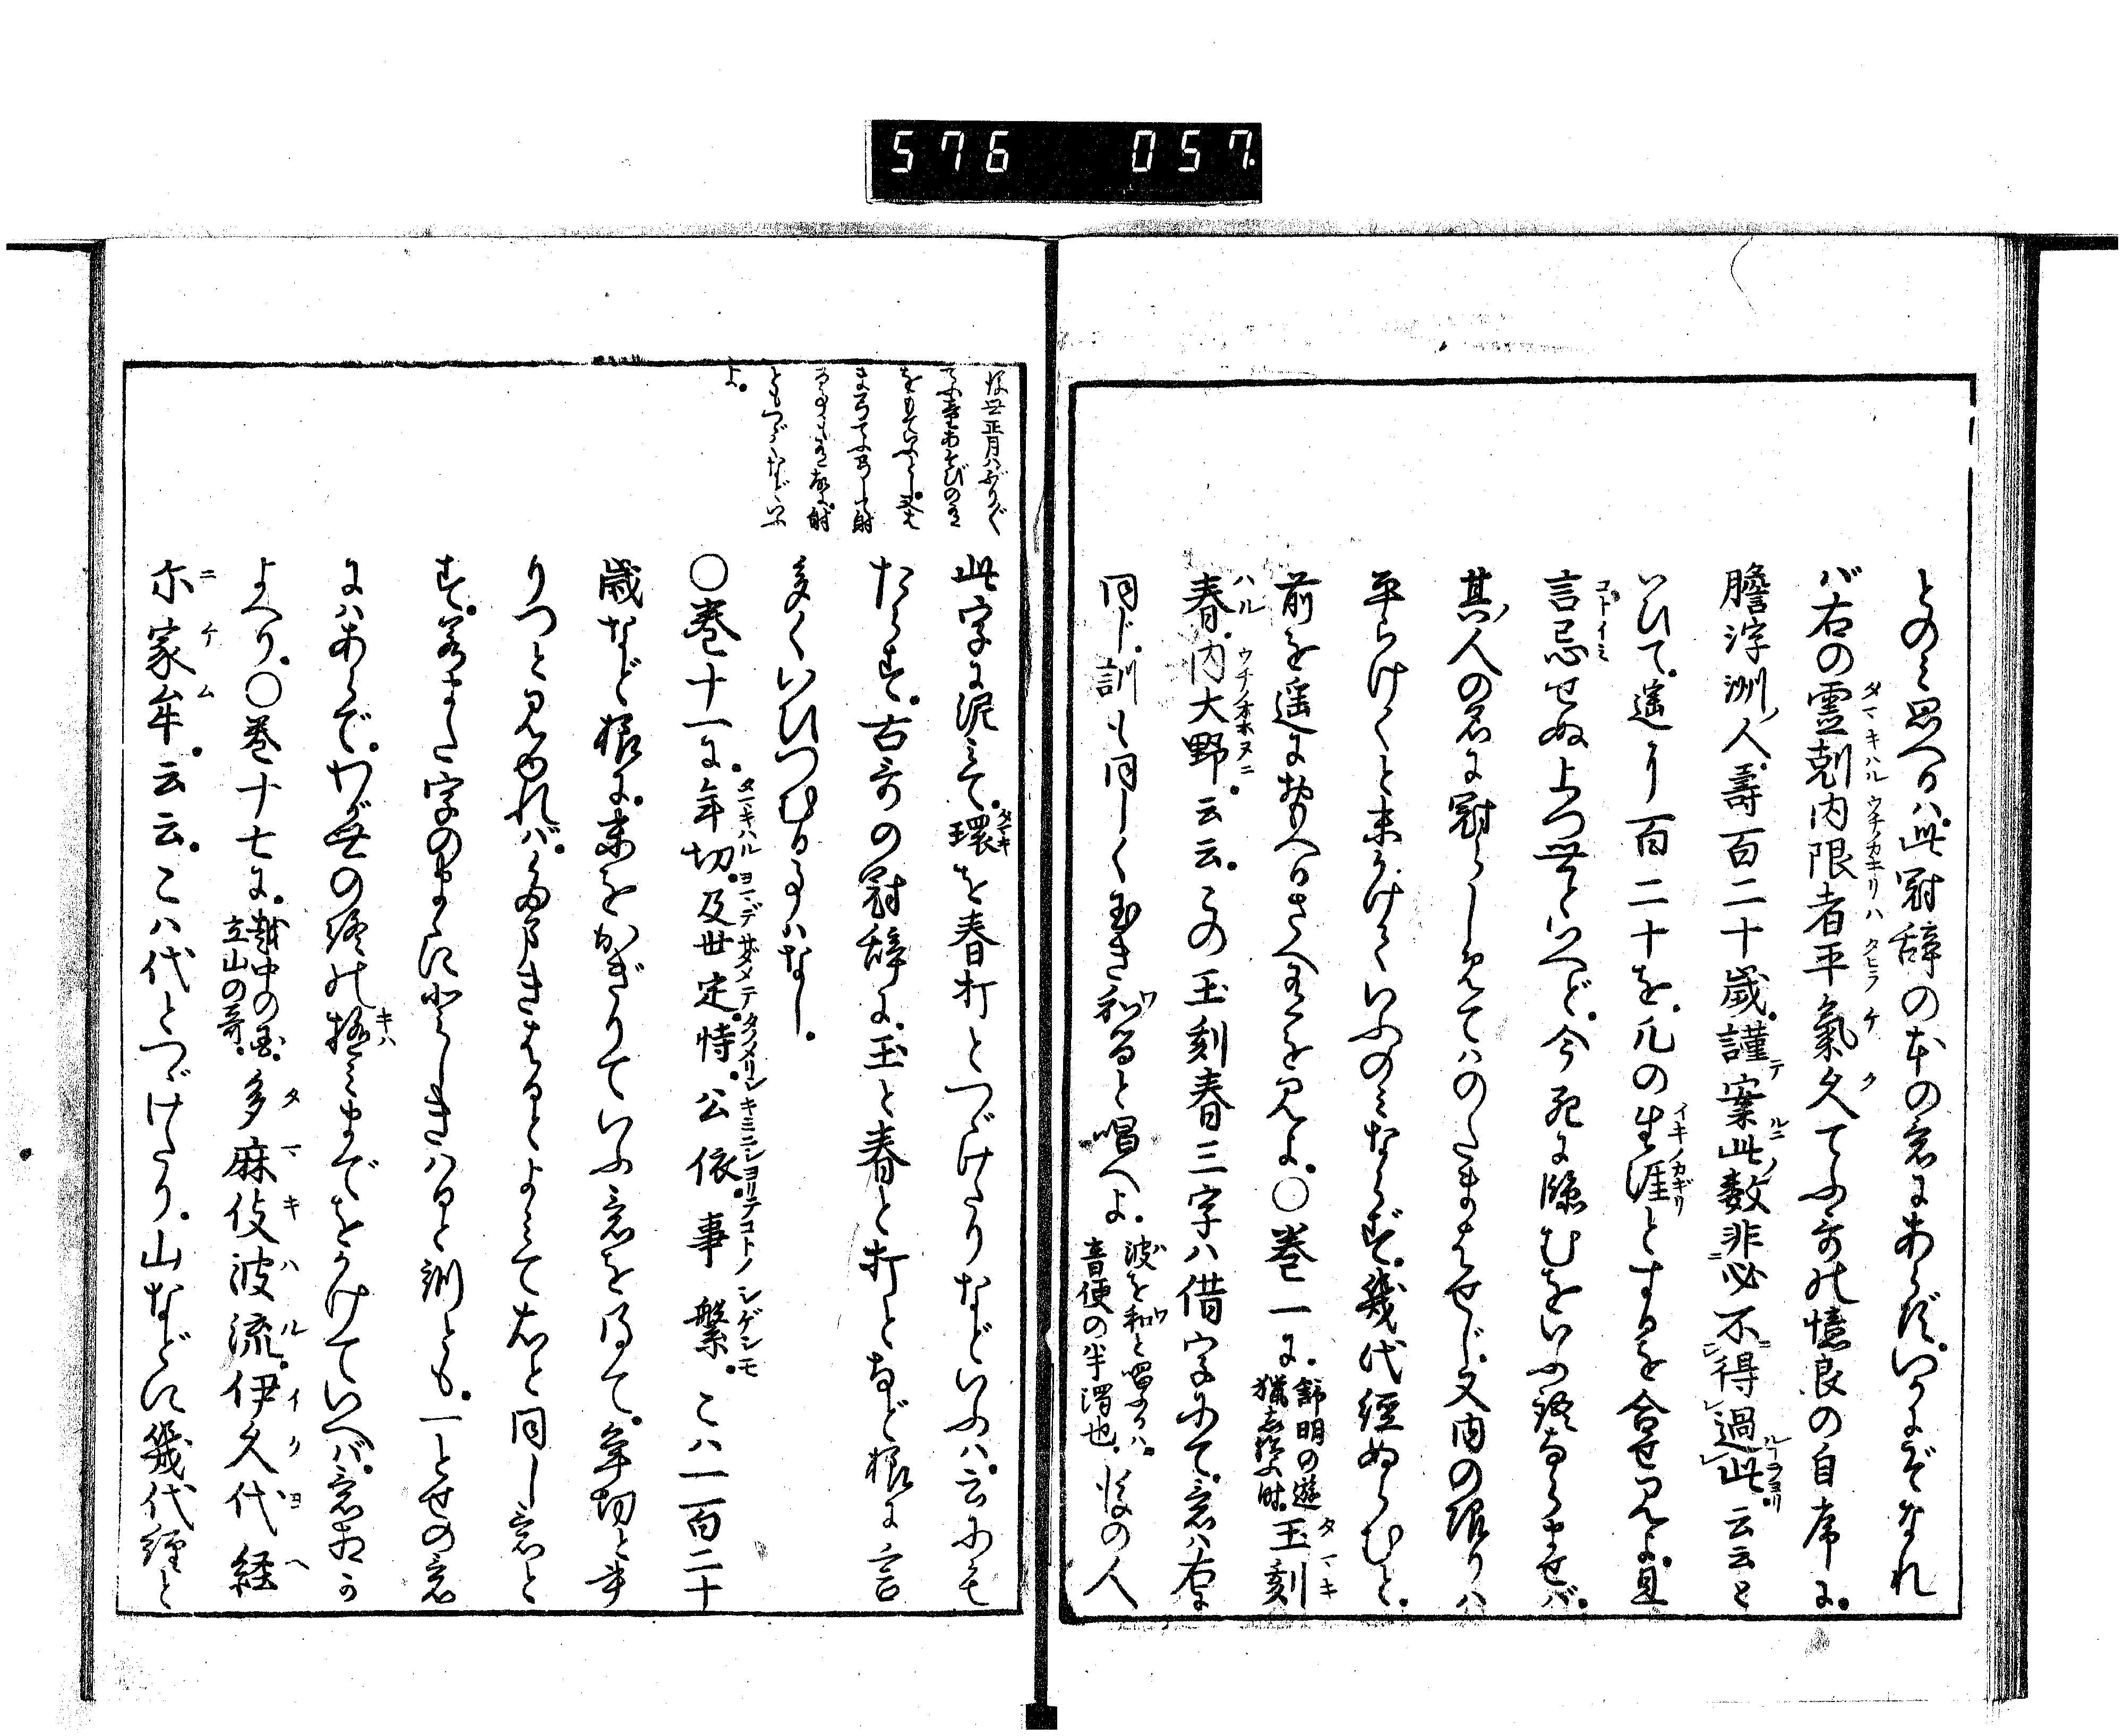 576 057.
とのミ思へるハ此冠辞の本の意にあらず。いかにぞなれ
バ右の霊剋内限者平氣久てふ哥の憶良の自序に。
瞻浮洲人壽百二十歳。謹案此数非必不得過此云云と
いひて。遥けり百二十を。凡の生涯とするを合せ見よ。且
言忌せぬ上つ世といへど。今死に臨むをいふ語ならませバ。
其人の名に冠らしめてハのたまはせじ。又内の限りハ
平らけくと末かけていふのミならず。幾代經ぬらむと。
前を遥におもへるさへ有を見よ。○巻一に。舒明の遊猟し給ふ時。玉刻
春。内大野。云云。この玉刻春三字ハ借字にて。意ハ右に
同じ。訓も同しく玉き和ると唱へよ。波を和と唱ふるハ。音便の半濁也。後の人
後世正月ハぶりぐ
てふ童あそびの有
をもていへらく
まりてふ射
る射
ともつゞくなどいふ
よ。
此字に泥ミて。環を春打とつゞけたりなどいふハ。云にも
たらず。古哥の冠辞に。玉と春と打となど様に言
多くいひつむる事ハなし。
○巻十一に。年切。及世定。恃。公依。事繁。こハ一百二十
歳など様に。末をかぎりていふ意を得て。年切と書
りつと見ゆれバ。たまきはるとよミて右と同し意と
す。若また字のまゝに年きハると訓とも。一とせの意
にハあらで。わが世の終の極ミまでをかけていへバ。意おか
よへり。○巻十七に。越中の国。立山の哥。多麻伎波流。伊久代経
尓家牟。云云。こハ代とつゞけたり。山などに幾代經と